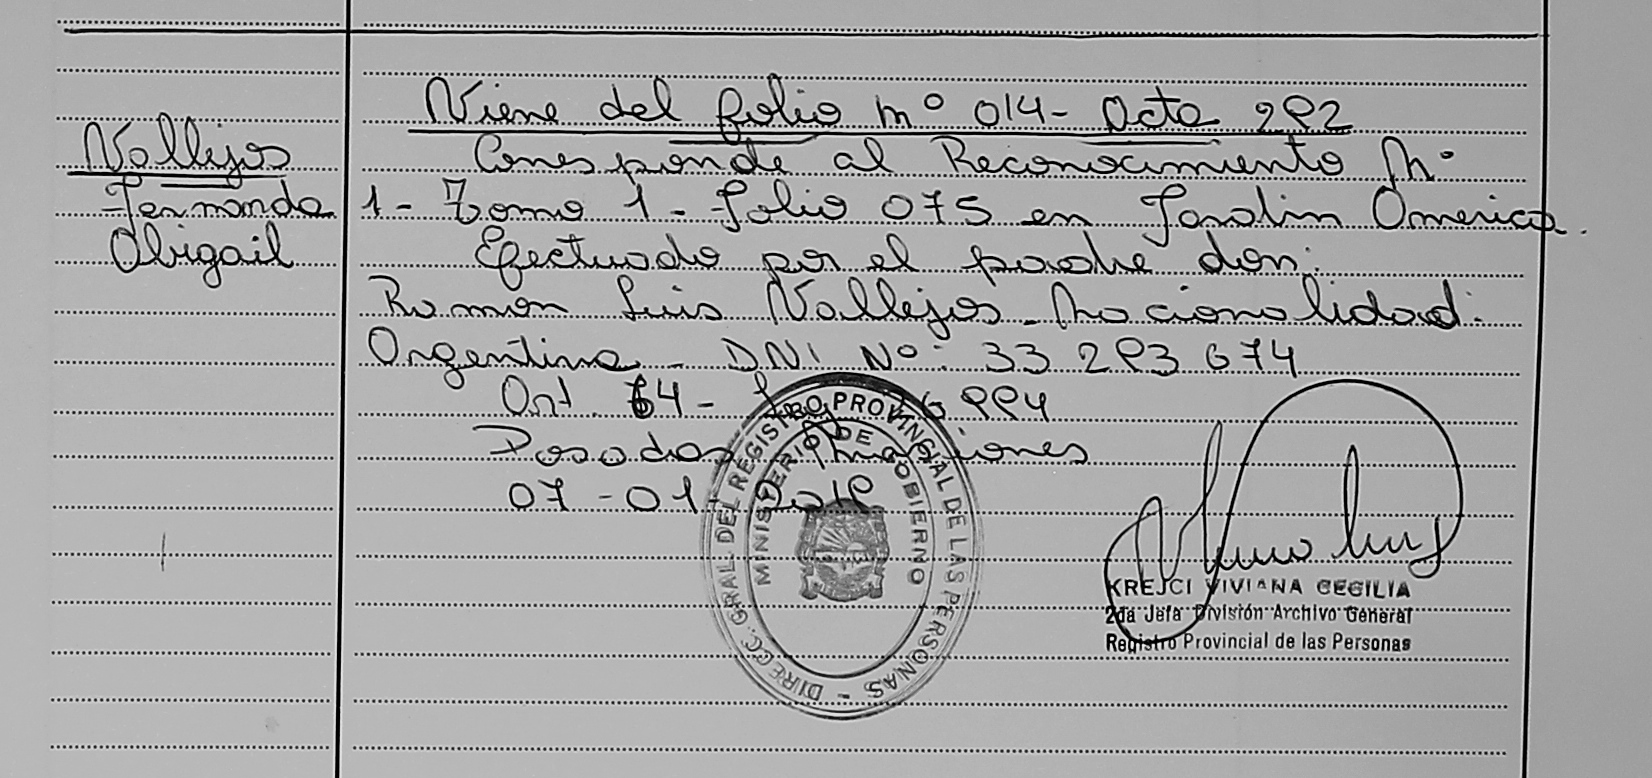 Vallejos
Fernanda
Abigail
Viene del folio nº 014 - Acta 292
Corresponde al Reconocimiento Nº
1 - Tomo 1 - folio 075 en Jardin America.
Efectuado por el padre don:
Ramon Luis Vallejos - Nacionalidad:
Argentina - DNI Nº: 33 293 674
Art. 64 - 26994
Posadas, Misiones
07-01-2019
DIRECC. GRAL. DEL REGISTRO PROVINCIAL DE LAS PERSONAS -
MINISTERIO DE GOBIERNO
KREJCI VIVIANA CECILIA
2da Jefa División Archivo General
Registro Provincial de las Personas